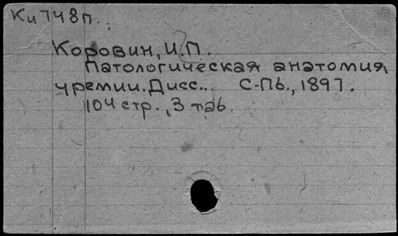 Ки 748п.
Коровин, И.П.
Патологическая анатомия
уремии. Дисс... С-Пб., 1897.
104 стр., 3 таб.